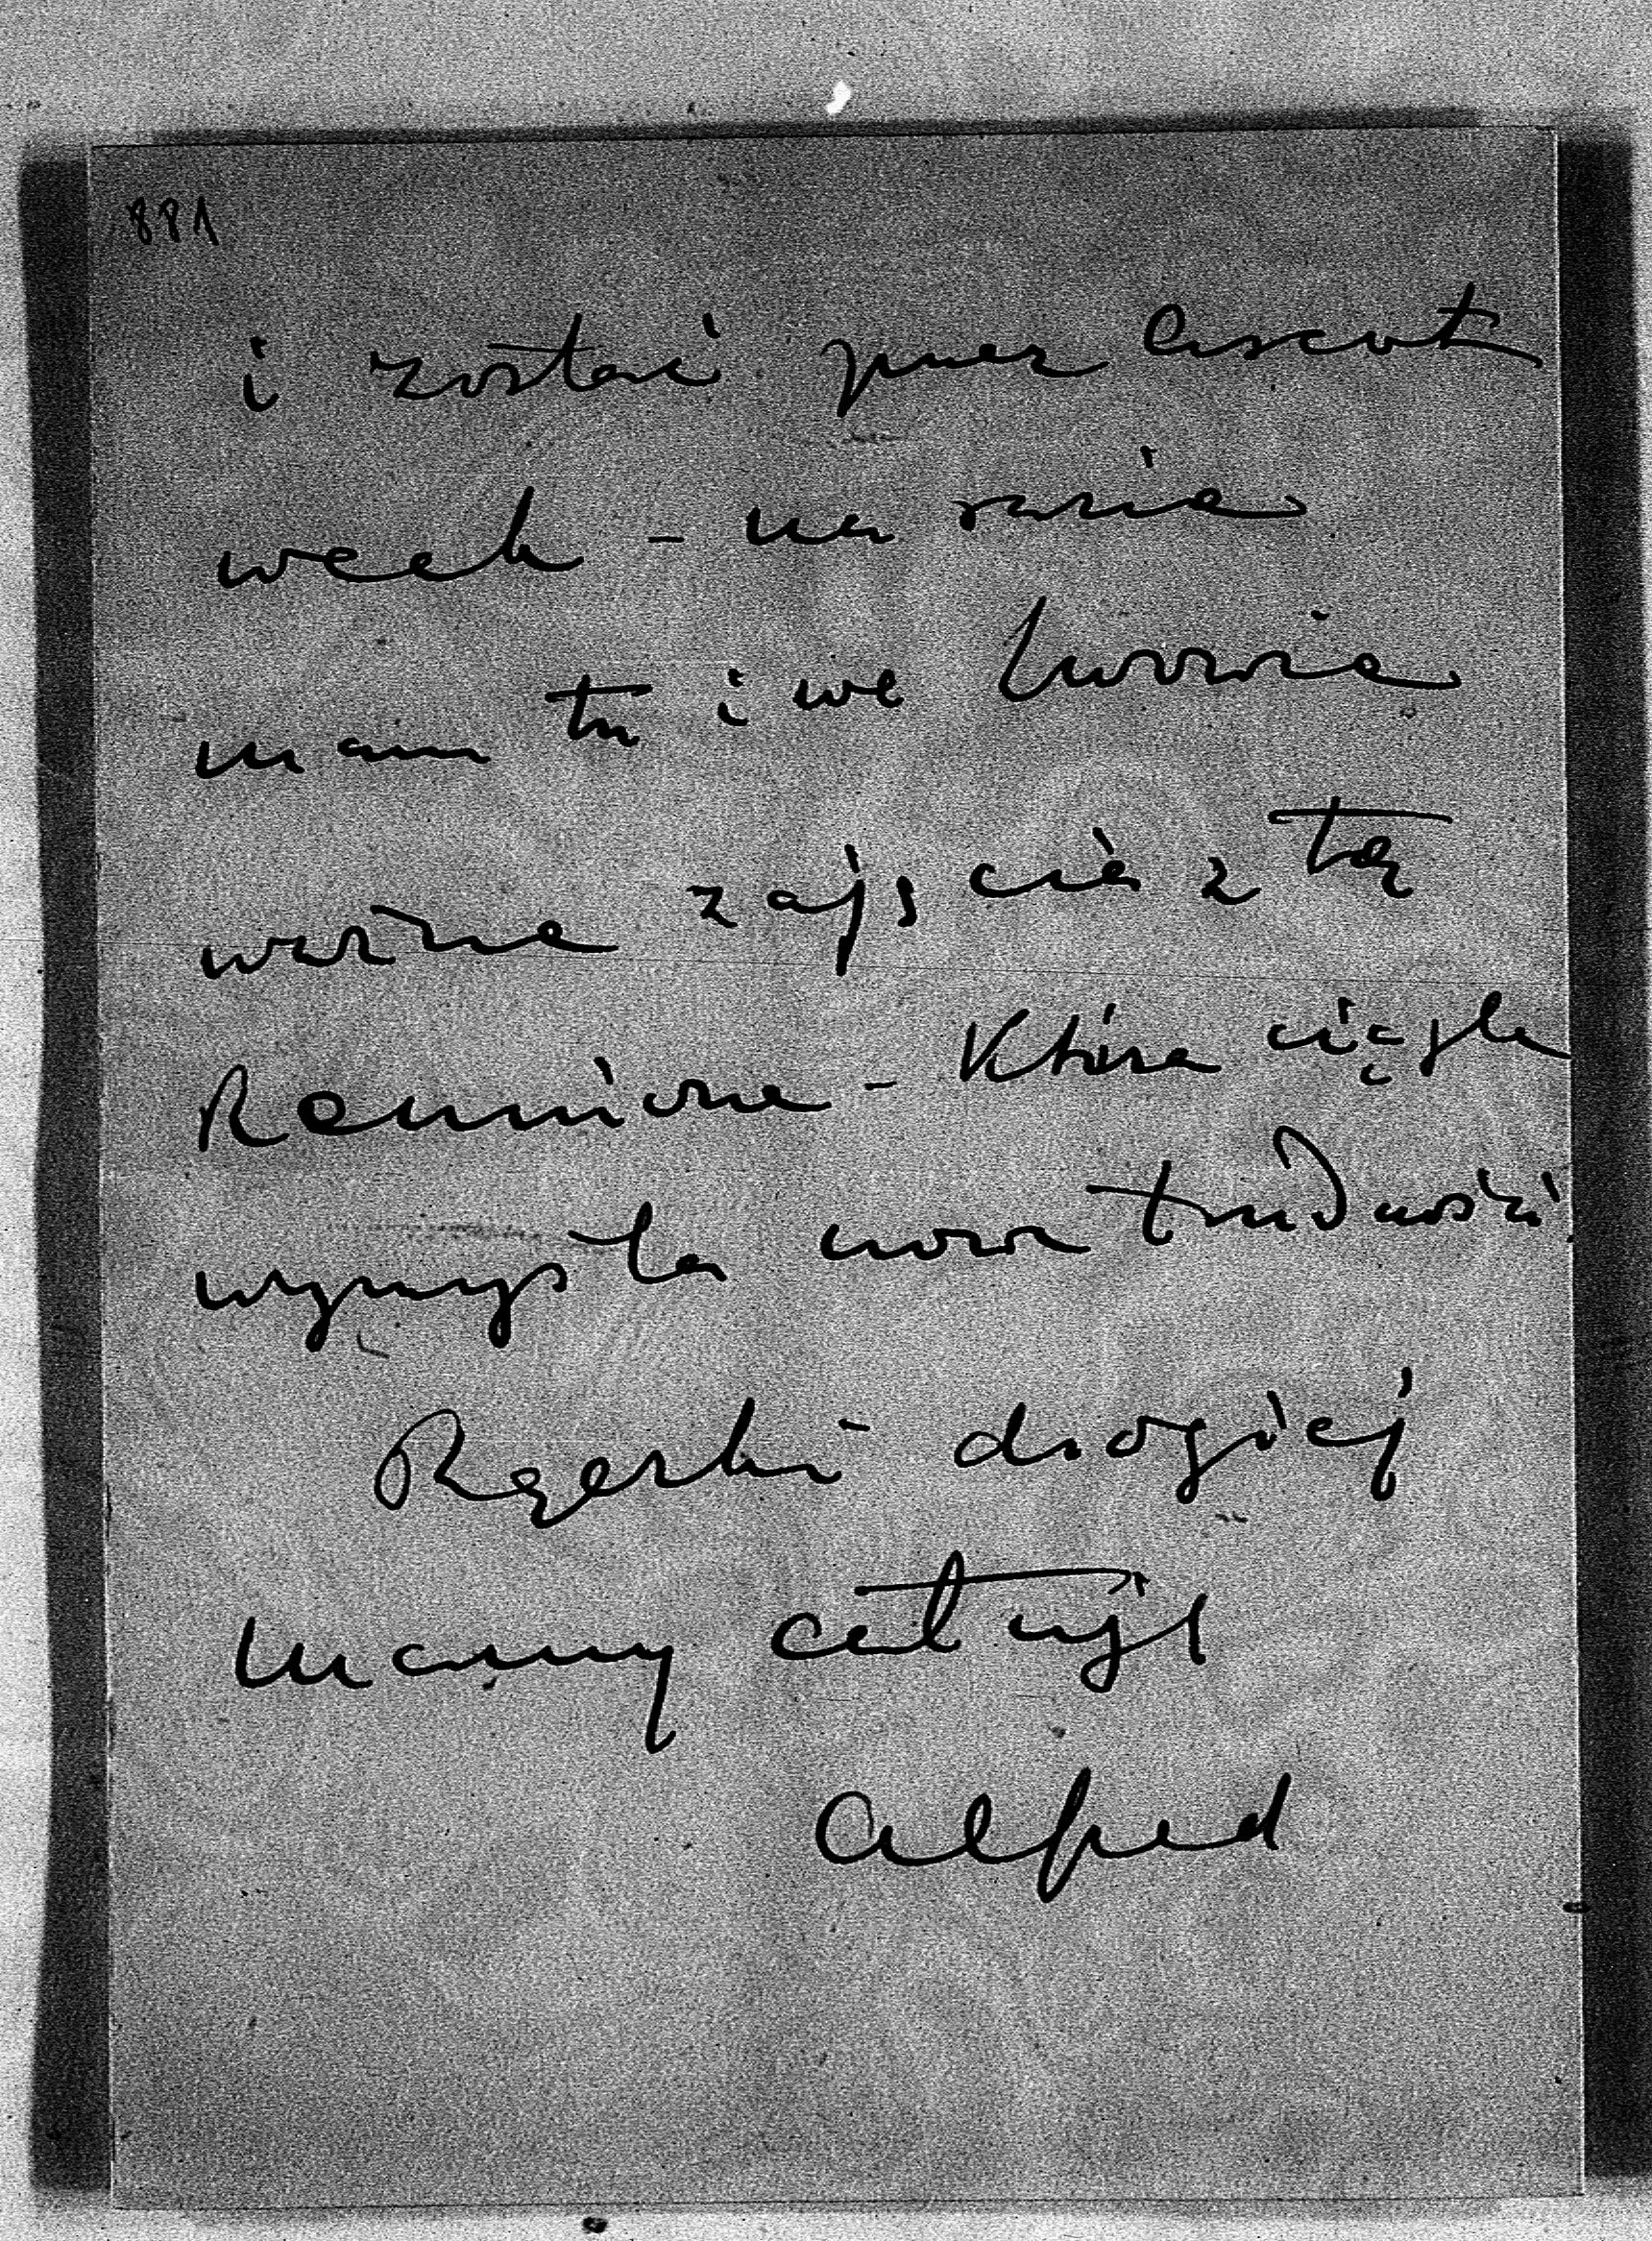 881
i zostać przez Ascot
week - na razie
mam tu i we Lwowie
ważne zajścia z tą
Reunione - która ciągle
wymyśla nowe trudności
Rączki drogiej
Mamy całuję
Alfred